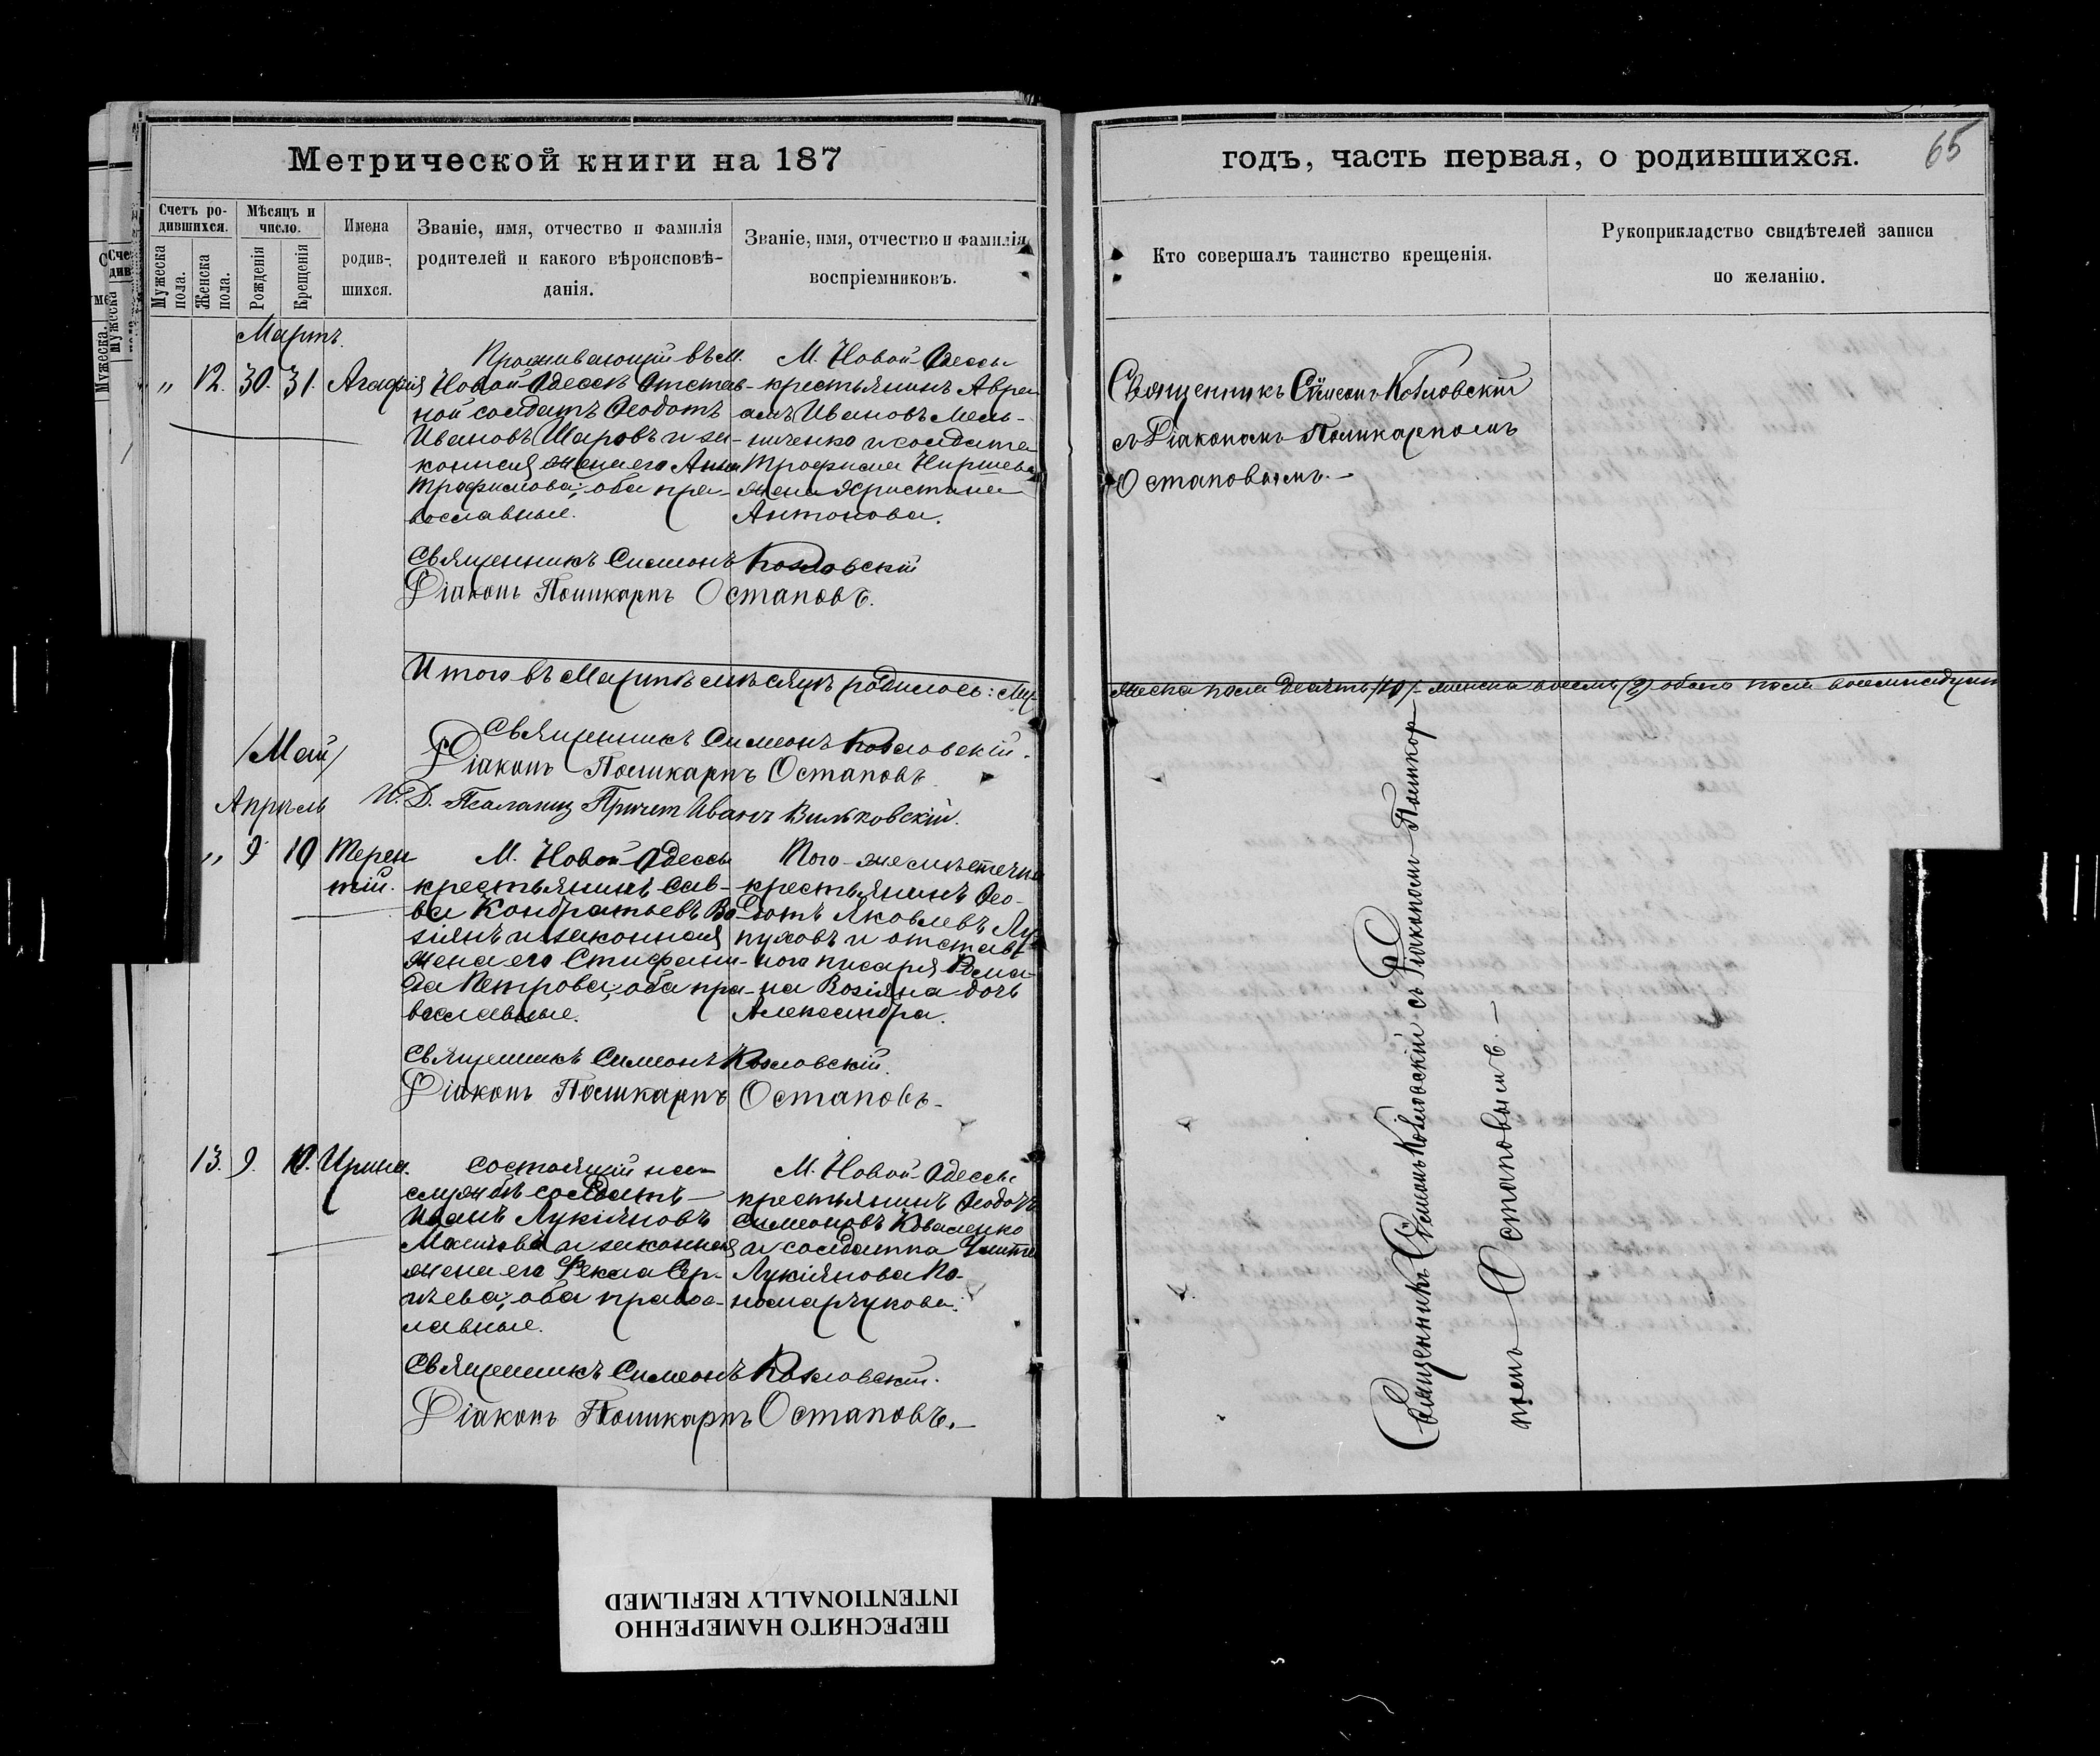 Метрической книги на 187
годъ, часть первая, о родившихся.
65
Счетъ ро-
дившихся.
Мужеска
пола.
Женска
пола.
Мѣсяцъ и
число.
Рожденія
Крещенія
Имена
родив-
шихся.
Званіе, имя, отчество и фамилія
родителей и какого вѣроисповѣ-
данія.
Званіе, имя, отчество и фамилія
воспріемниковъ.
Кто совершалъ таинство крещенія.
Рукоприкладство свидѣтелей записи
по желанію.
Мартъ.
„ 12. 30. 31. Агафія
Проживающій въ м.
Новой-Одессѣ отстав-
ной солдатъ Ѳеодотъ
Ивановъ Шаровъ и за-
конная жена его Анна
Трофимова; оба пра-
вославные.
М. Новой-Одессы
крестьянинъ Авра-
амъ Ивановъ Мель-
ниченко и солдата
Трофима
жена Христина
Антонова.
Священникъ Симеонъ Козловскій
съ Діакономъ Поликарпомъ
Остаповымъ.—
Священникъ Симеонъ Козловскій
Діаконъ Поликарпъ Остаповъ.
Итого въ Мартѣ мѣсяцѣ родилось: Му-
жеска пола десять (10) женска восемь (8) обоего пола восемнадцать
Священникъ Симеонъ Козловскій.
Діаконъ Поликарпъ Остаповъ
/Май/
И. Д. Псаломщ Иванъ Вильковскій.
Апрѣль
„ 9 10 Терен
тій.
М. Новой-Одессы
крестьянинъ Сав-
ва Кондратьевъ Во-
зіянъ и законная
жена его Стифани-
да Петрова; оба пра-
вославные.
Того-же мѣстечка
крестьянинъ Ѳео-
дотъ Яковлевъ Лу-
пуховъ и отстав-
ного писаря Рома-
на Возіяна дочь
Александра.
Священникъ Симеонъ Козловскій.
Діаконъ Поликарпъ Остаповъ.
13. 9. 10. Ирина.
Состоящій на
службѣ солдатъ
Иванъ Лукіяновъ
и законная
жена его Ѳекла Сер-
гѣева; оба правос-
лавные.
М. Новой-Одессы
крестьянинъ Ѳеодотъ
Симеоновъ Коваленко
и солдатка
Лукіянова По-
номарчукова.
Священникъ Симеонъ Козловскій.
Діаконъ Поликарпъ Остаповъ.—
Священникъ Симеонъ Козловскій съ Діакономъ Поликар-
помъ Остаповымъ.—
ПЕРЕСНЯТО НАМЕРЕННО
INTENTIONALLY REFILMED